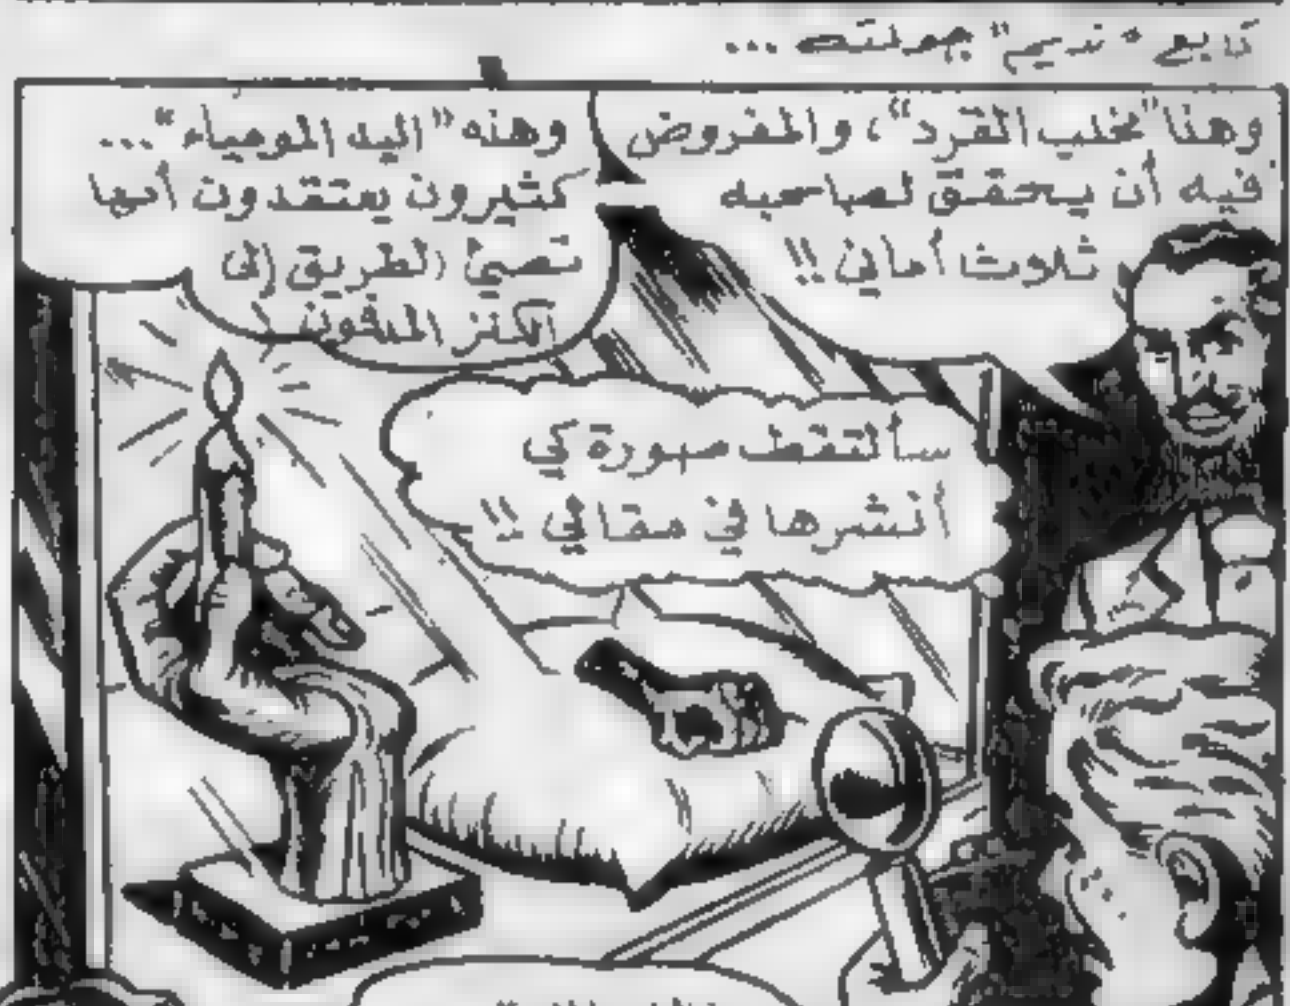 تابع "نديم" جولته ...
وهنا "مخلب القرد"، والمفروض
فيه أن يحقق لصاحبه
ثلاث أماني !!
وهذه "اليد المومياء"...
كثيرون يعتقدون أنها
تضيئ الطريق إلى
الكنز المدفون !
سألتقط صورة كي
أنشرها في مقالي !!